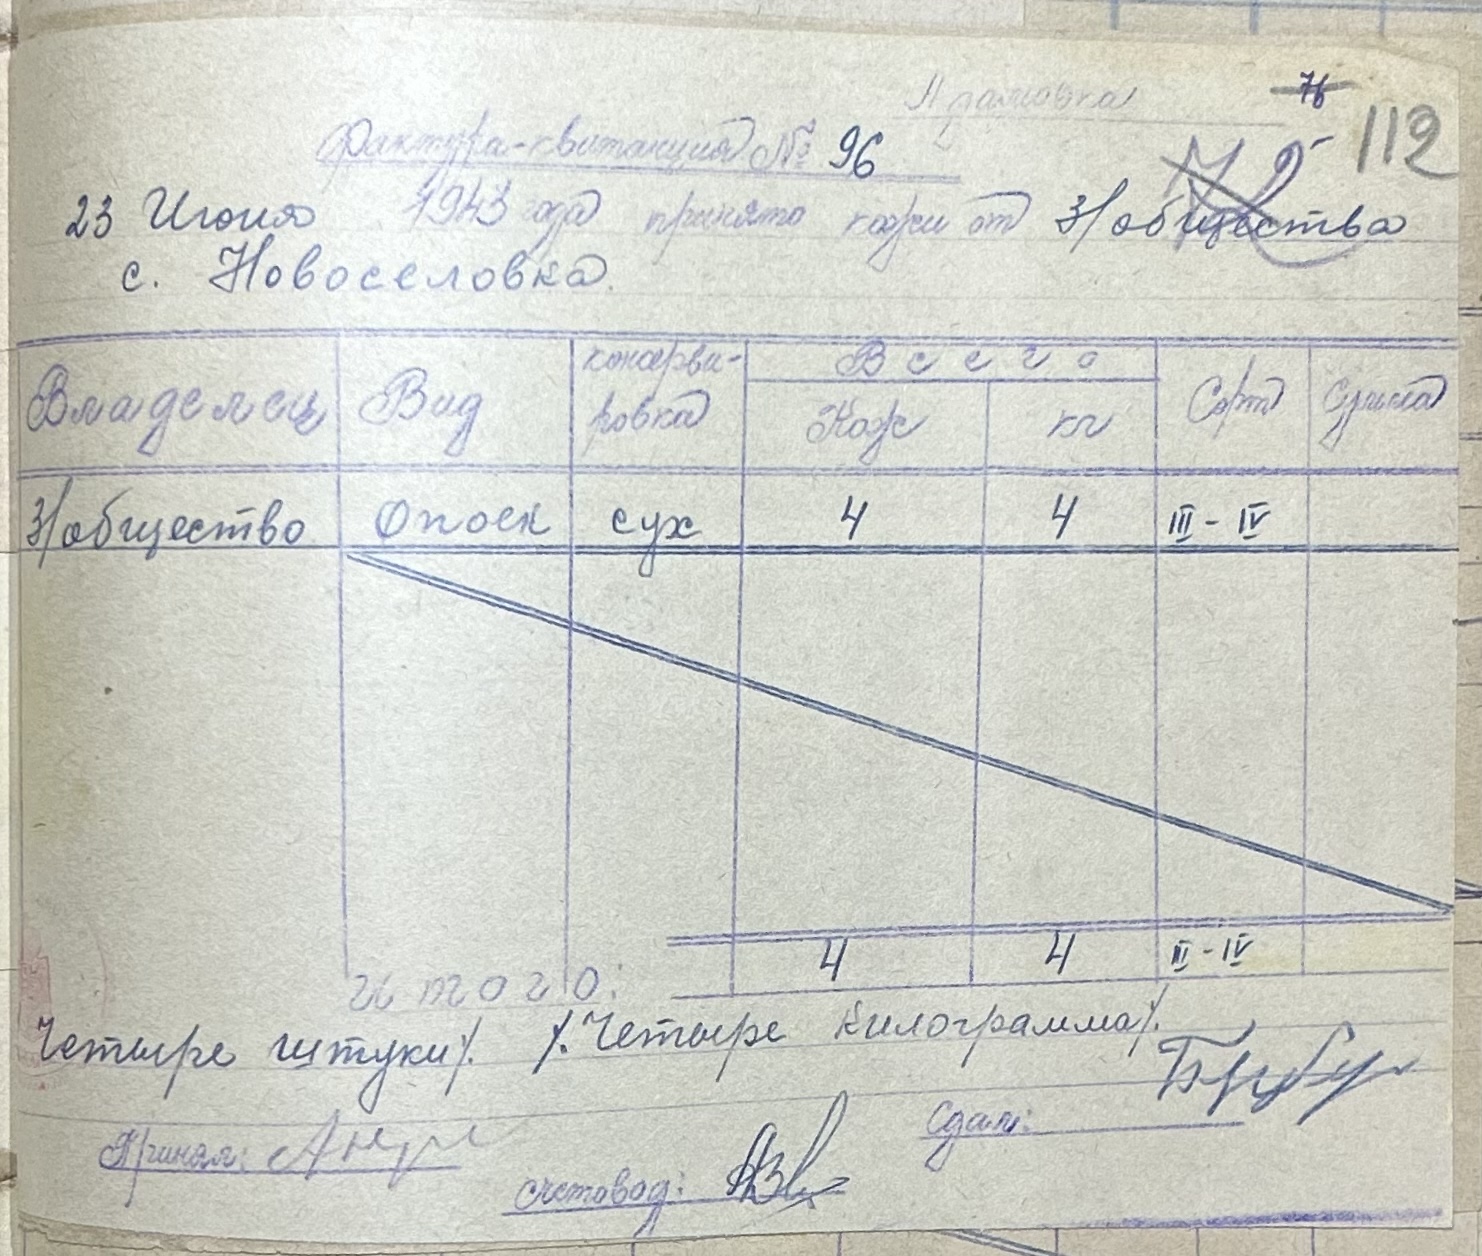 76
112
Фактура-квитанция № 96
23 Июня 1943 года принято кожи от З/общества
с. Новоселовка.
Владелец Вид консерви-ровка Всего Кож кг Сорт Сумма
З/общество Опоек сух 4 4 III - IV
4 4 III - IV
итого:
Четыре штуки/. /.Четыре килограмма/.
Принял:
Сдал:
счетовод: